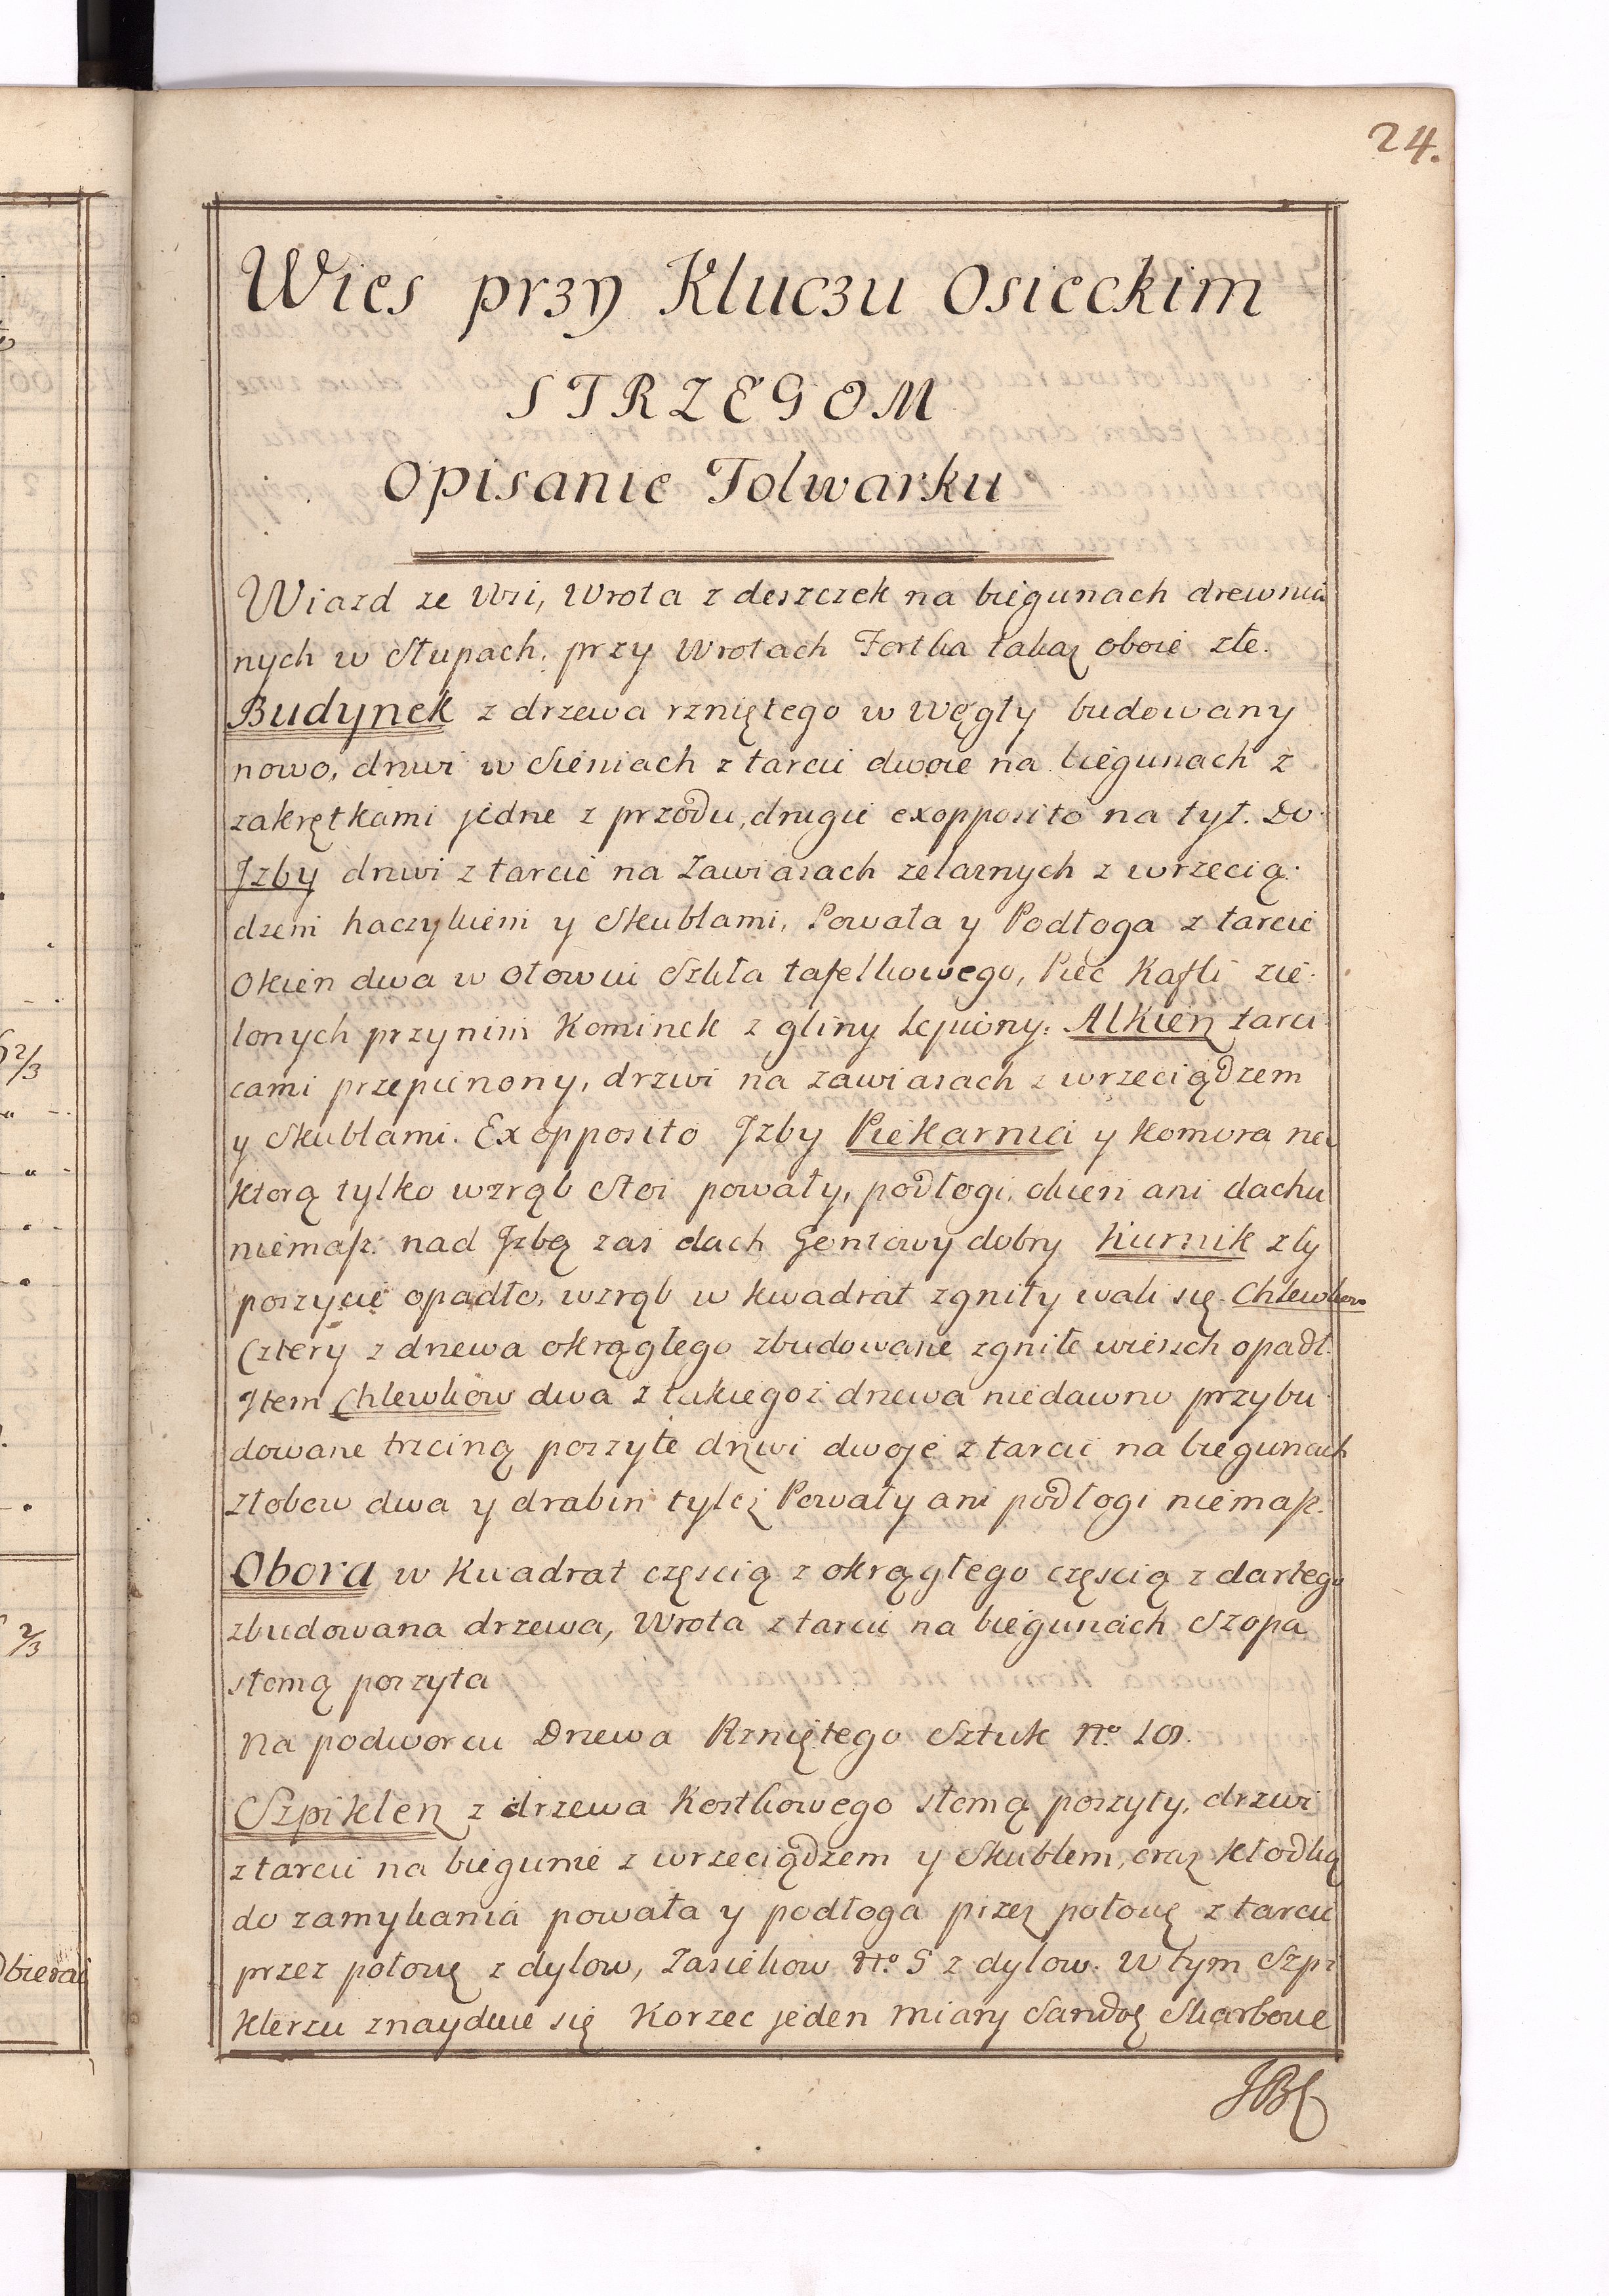 24.
Wies przy Kluczu Osieckim
STRZEGOM
Opisanie Folwarku
Wiazd ze Wsi, Wrota z deszczek na biegunach drewnia
nych w Słupach, przy Wrotach Fortka takaż oboie złe.
Budynek z drzewa rzniętego w Węgły budowany
nowo, drzwi w Sieniach z tarcic dwoie na biegunach z
zakrętkami jedne z przodu, drugie exopposito na tył. Do
Jzby drzwi z tarcic na Zawiasach zelaznych z wrzecią:
dzem haczykiem y Skublami, Powała y Podłoga z tarcic
Okien dwa w Ołowiu Szkła tafelkowego, Piec Kafli zie:
lonych przynim Kominek z gliny Lepiony. Alkierz tarci
cami przepierzony, drzwi na zawiasach z wrzeciądzem
y Skublami. Exopposito Jzby Piekarnia y Komora na
ktorą tylko wzrąb Stoi powały, podłogi, okien ani dachu
niemasz. nad Jzbą zas dach Gontowy dobry Kurnik zły
poszycie opadło, wzrąb w kwadrat zgniły wali się. Chlewkow
Cztery z drzewa okrągłego zbudowane zgniłe wierzch opadł.
Jtem Chlewkow dwa z takiegoż drzewa niedawno przybu
dowane trzciną poszyte drzwi dwoje z tarcic na biegunach
złobow dwa y drabin tyleż Powały ani podłogi niemasz.
Obora w Kwadrat częscią z okrągłego częscią z dartego
zbudowana drzewa, Wrota z tarcic na biegunach Szopa
słomą poszyta
Na podworcu Drzewa Rzniętego Sztuk No
Szpiklerz z drzewa Kostkowego słomą poszyty, drzwi
z tarcic na biegunie z wrzeciądzem y Skublem, oraz kłodką
do zamykania powała y podłoga przez połowę z tarcic
przez połowę z dylow, Zasiekow No 5 z dylow. W tym Szpi
klerzu znayduie się Korzec jeden miary Skarbowe